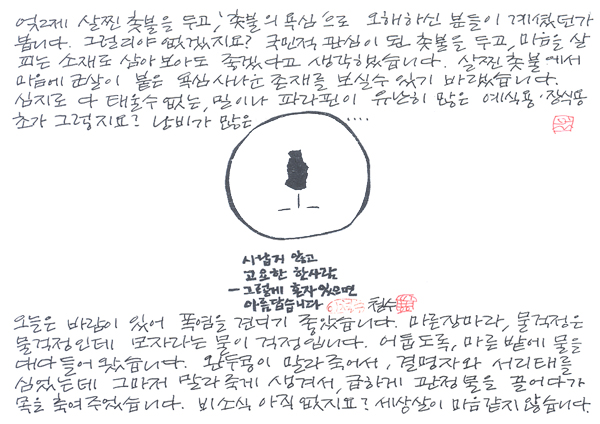 엊그제 살찐 촛불을 두고, '촛불의 욕심'으로 오해하신 분들이 계셨던가
봅니다. 그럴리야 없겠지요? 국민적 관심이 된 촛불을 두고, 마음을 살
피는 소재로 삼아 보아도 좋겠다고 생각하였습니다. 살찐 촛불에서
마음에 군살이 붙은 욕심 사나운 존재를 보실 수 있기 바랬습니다.
심지로 다 태울 수 없는, 밀이나 파라핀이 유난히 많은 예식용·장식용
초가 그렇지요? 낭비가 많은 ....
사납지 않고
고요한 한사람
- 그렇게 혼자 있으면
아름답습니다 철수
오늘은 바람이 있어 폭염을 견디기 좋았습니다. 마른장마라, 물걱정은
물걱정인데 모자라는 물이 걱정입니다. 어둡도록, 마른 밭에 물을
대다 들어 왔습니다. 완두콩이 말라 죽어서, 결명자와 서리태를
심었는데 그마저 말라죽게 생겨서, 급하게 관정 물을 끌어다가
목을 축여 주었습니다. 비소식 아직 없지요? 세상살이 마음 같지 않습니다.